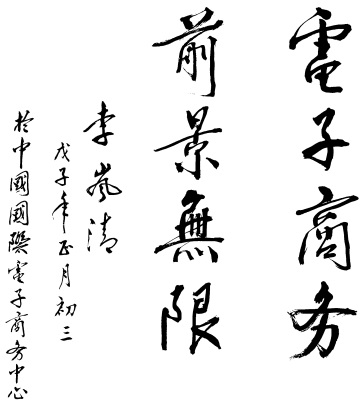 電子商务
前景無限
李嵐清
戊子年正月初三
於中國國際電子商务中心